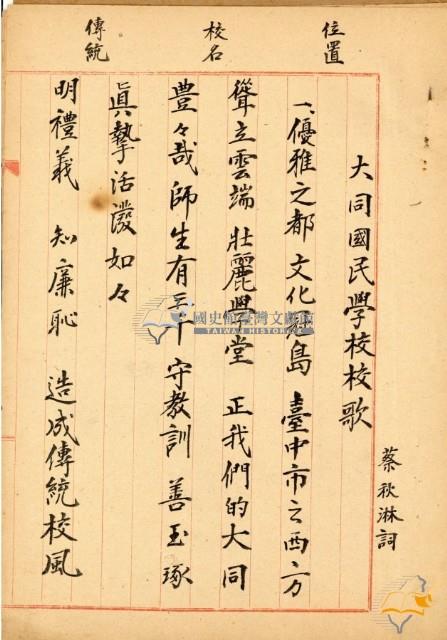 大同國民學校校歌
蔡秋淋詞
位置
一、優雅之都 文化島 臺中市之西方
聳立雲端 壯麗學堂 正我們的大同
校名
豊々哉 師生有三千 守教訓 善玉琢
眞摯活潑如々
傳統
明禮義 知廉恥 造成傳統校風
國史館臺灣文獻館
TAIWAN HISTORICA